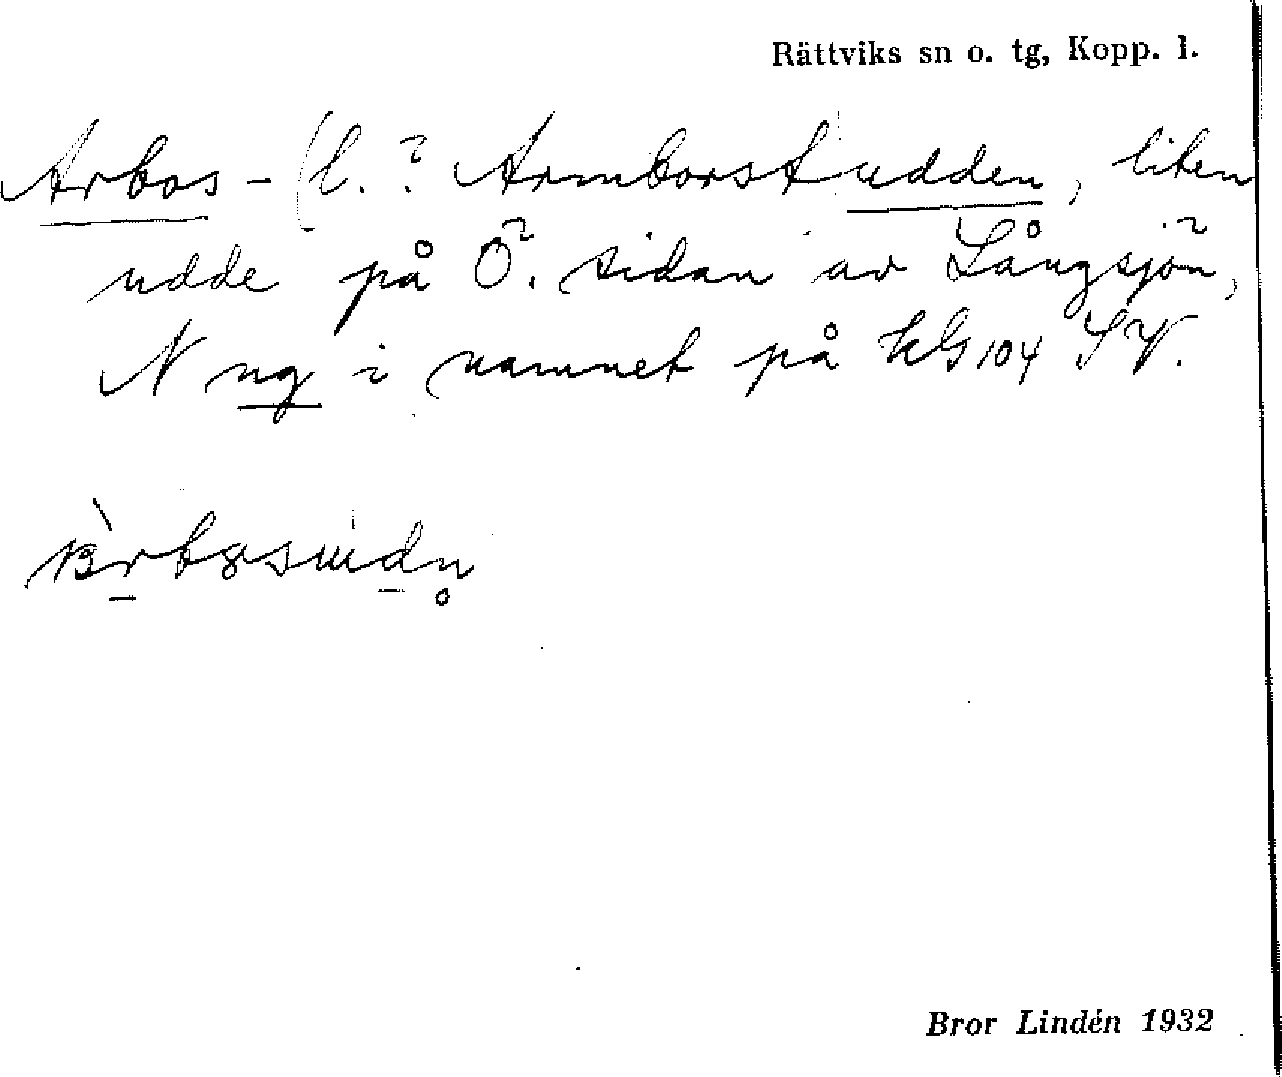 Rättviks sn o. tg, Kopp. l.
Arbos- (l. ? Armborst udden, liten
udde på Ö. sidan av Långsjön,
N ng i namnet på kG 104 SV.
Bror Lindén 1932